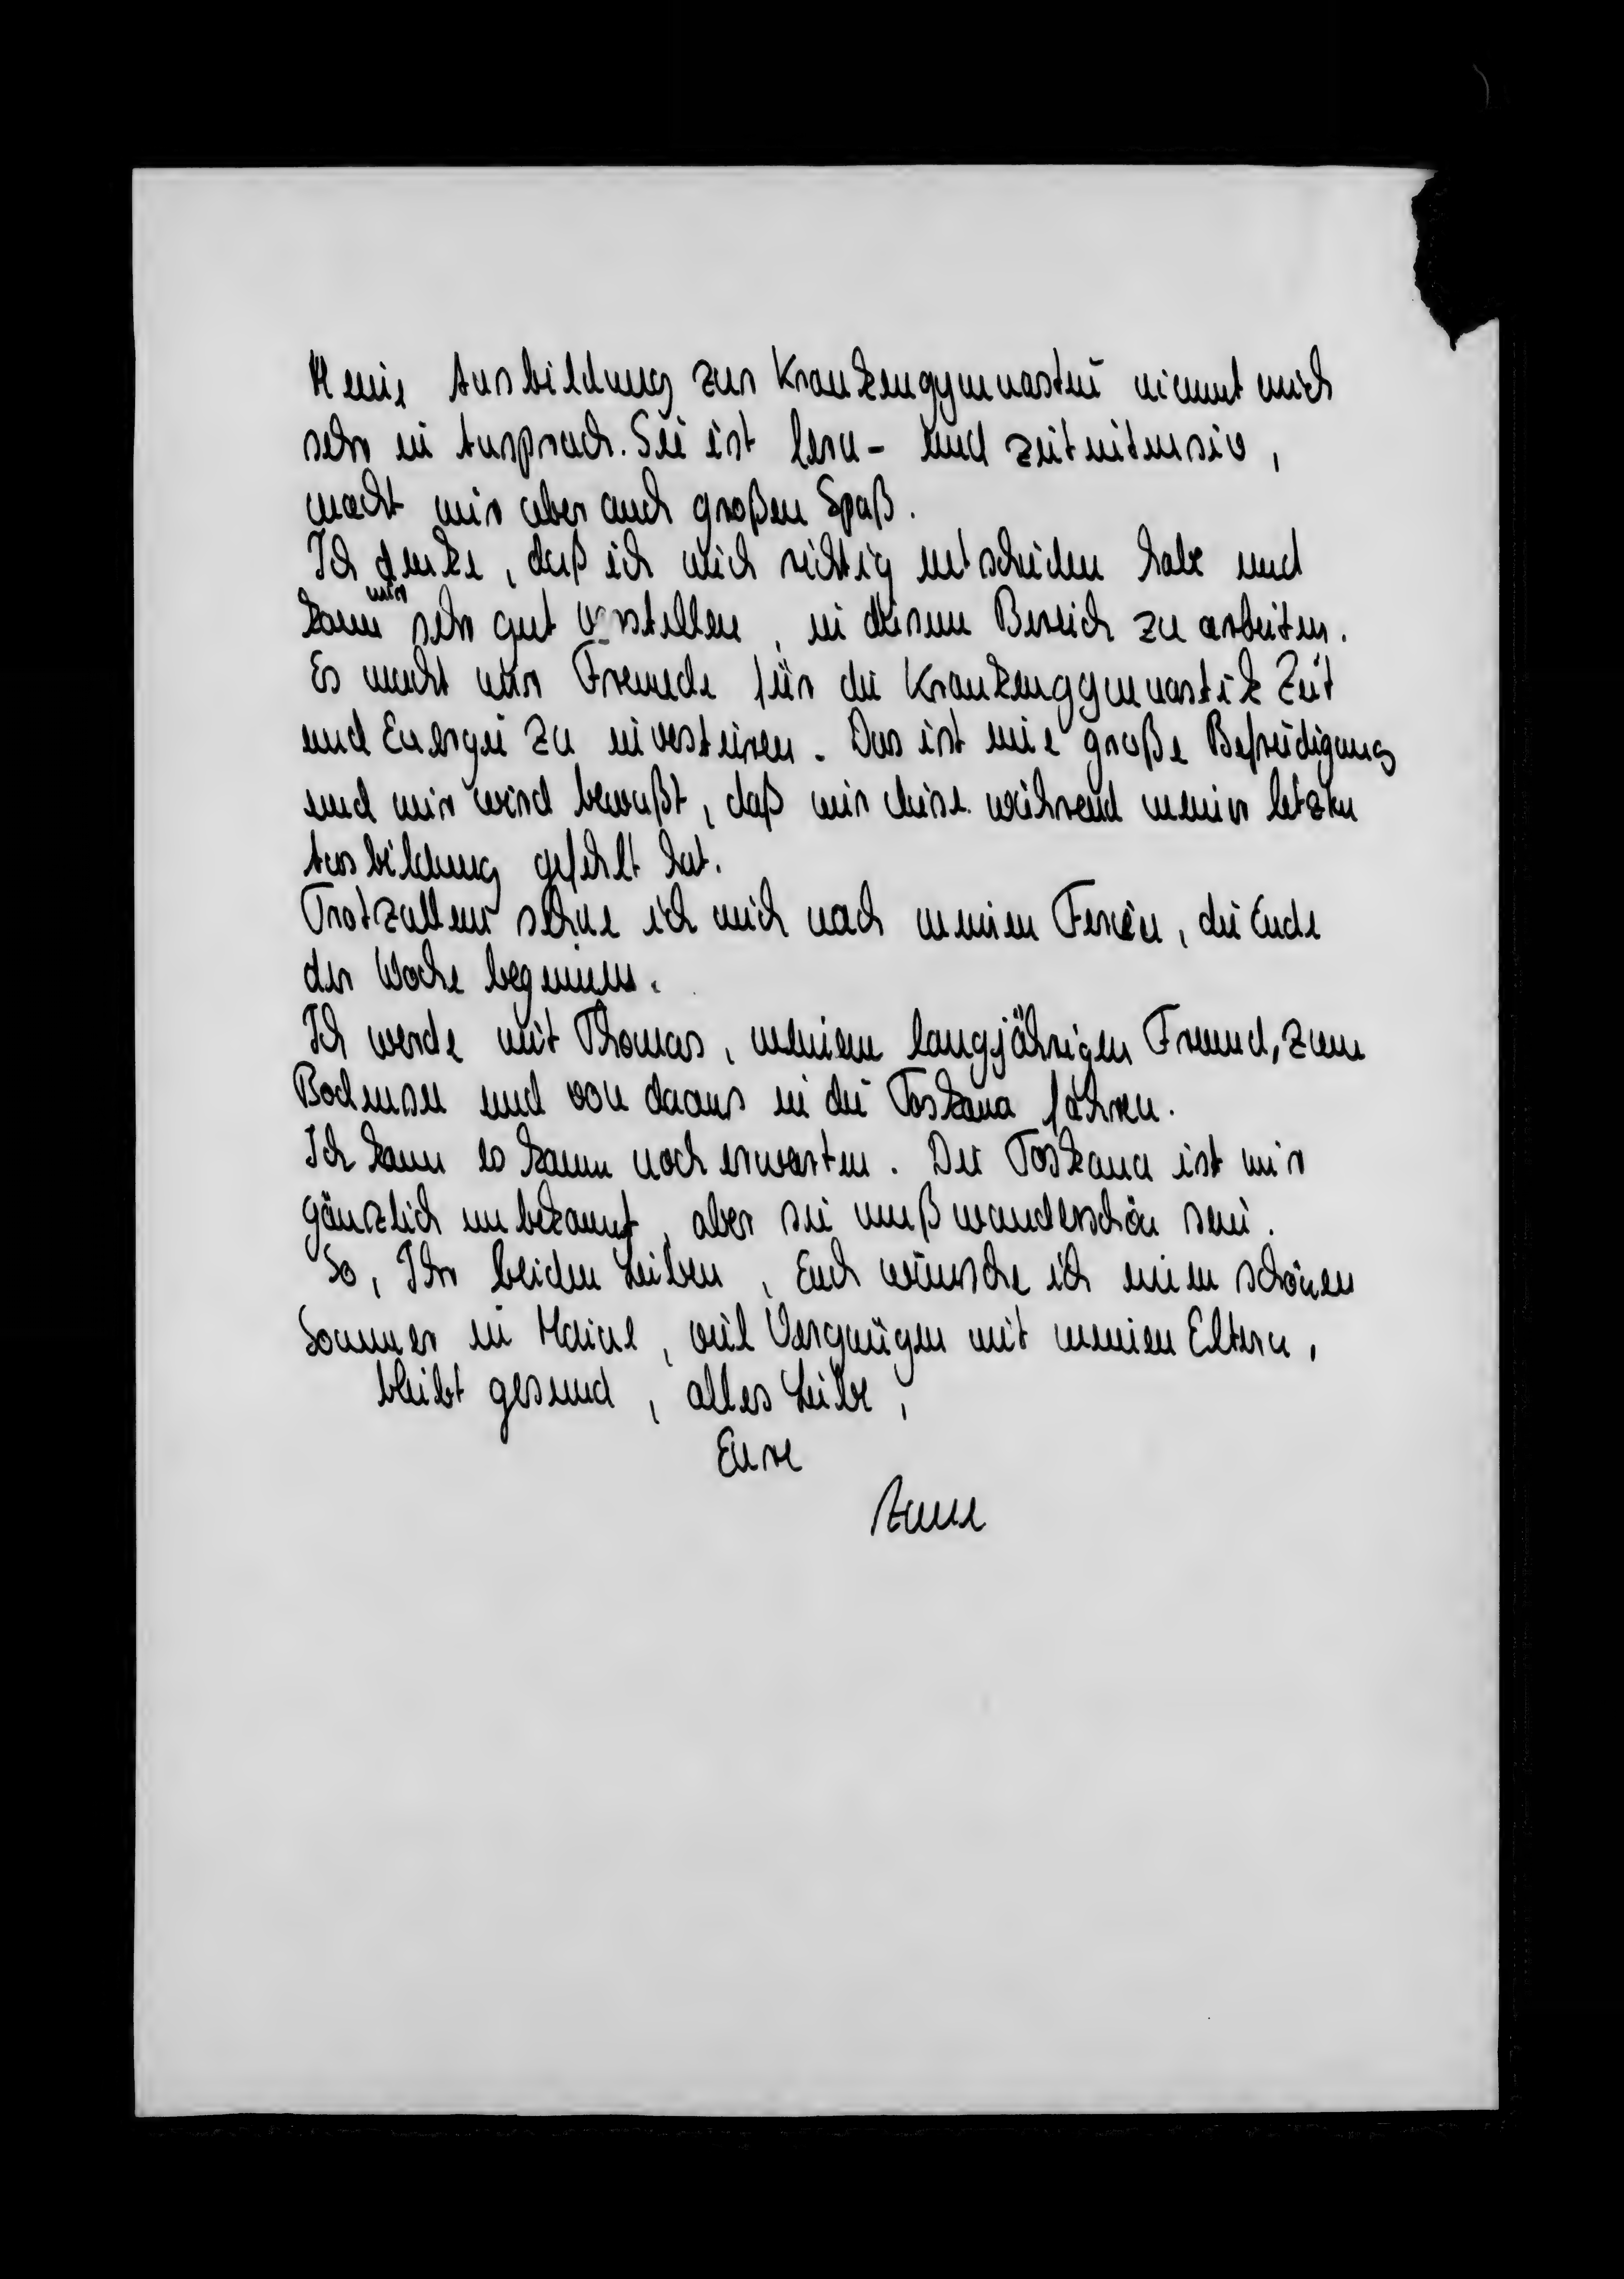 Meine Ausbildung zur Krankengymnastin nimmt mich
sehr in Anspruch. Sie ist lern- und zeitintensiv,
macht mir aber auch großen Spaß.
Ich denke, daß ich mich richtig entschieden habe und
kann mir sehr gut vorstellen, in diesem Bereich zu arbeiten.
Es macht mir Freude für die Krankengymnastik Zeit
und Energie zu investieren. Das ist eine große Befriedigung
und mir wird bewußt, daß mir diese während meiner letzten
Ausbildung gefehlt hat.
Trotzallem sehne ich mich nach meinen Ferien, die Ende
der Woche beginnen.
Ich werde mit Thomas, meinem langjährigen Freund, zum
Bodensee und von daaus in die Toskana fahren.
Ich kann es kaum noch erwarten. Die Toskana ist mir
gänzlich unbekannt, aber sie muß wunderschön sein.
So, Ihr beiden Lieben, Euch wünsche ich einen schönen
Sommer in Maine, viel Vergnügen mit meinen Eltern,
bleibt gesund, alles Liebe,
Eure
Anne